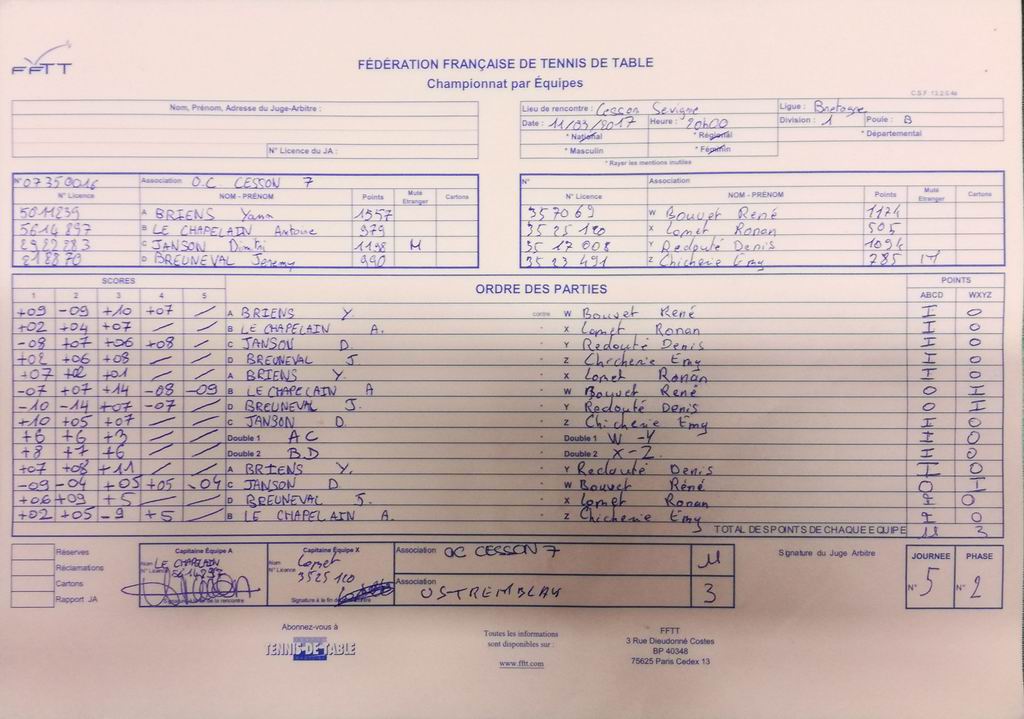 FFTT
FÉDÉRATION FRANÇAISE DE TENNIS DE TABLE
Championnat par Équipes
C.S.F. 13.2.5.4a
Nom, Prénom, Adresse du Juge-Arbitre :
N° Licence du JA :
Lieu de rencontre : Cesson Sevigne Ligue : Bretagne
Date : 11/03/2017 Heure : 20h00 Division : 1 Poule : B
* National * Régional * Départemental
* Masculin * Féminin
* Rayer les mentions inutiles
N° 07350016 Association O.C. CESSON 7
N° Licence NOM - PRÉNOM Points Muté Etranger Cartons
5011239 A BRIENS Yann 1357
5614297 B LE CHAPELAIN Antoine 979
2922283 C JANSON Dimitri 1198 M
218870 D BREUNEVAL Jeremy 990
N° Association
N° Licence NOM - PRÉNOM Points Muté Etranger Cartons
357069 W Bouvet René 1174
35 25 120 X Lomet Ronan 505
35 17 008 Y Redouté Denis 1094
35 23 491 Z Chicherie Emy 785
SCORES ORDRE DES PARTIES POINTS
1 2 3 4 5 ABCD WXYZ
+09 -09 +10 +07 / A BRIENS Y. contre W Bouvet René I 0
+02 +04 +07 / / B LE CHAPELAIN A. X Lomet Ronan I 0
-08 +07 +06 +08 / C JANSON D. Y Redouté Denis I 0
+02 +06 +08 / / D BREUNEVAL J. Z Chicherie Emy I 0
+07 +02 +01 / / A BRIENS Y. X Lomet Ronan I 0
-07 +07 +14 -08 -09 B LE CHAPELAIN A W Bouvet René 0 I
-10 -14 +07 -07 / D BREUNEVAL J. Y Redouté Denis 0 I
+10 +05 +07 / / C JANSON D. Z Chicherie Emy I 0
+6 +6 +3 / / Double 1 AC Double 1 W-Y I 0
+8 +7 +6 / / Double 2 B.D Double 2 X-Z I 0
+07 +08 +11 / / A BRIENS Y. Y Redouté Denis I 0
-09 -04 +05 +05 -04 C JANSON D W Bouvet René 0 I
+06 +09 +5 / / D BREUNEVAL J. X Lomet Ronan I 0
+02 +05 -9 +5 / B LE CHAPELAIN A. Z Chicherie Emy I 0
TOTAL DES POINTS DE CHAQUE EQUIPE 11 3
Réserves
Réclamations
Cartons
Rapport JA
Capitaine Équipe A
Nom LE CHAPELAIN
N° Licence 5614297
Capitaine Équipe X
Nom Lomet
N° Licence 3525120
Signature à la fin de
Association OC CESSON 7 11
Association USTREMBLAY 3
Signature du Juge Arbitre
JOURNEE PHASE
N° 5 N° 2
Abonnez-vous à
TENNIS DE TABLE
Toutes les informations
sont disponibles sur :
www.fftt.com
FFTT
3 Rue Dieudonné Costes
BP 40348
75625 Paris Cedex 13